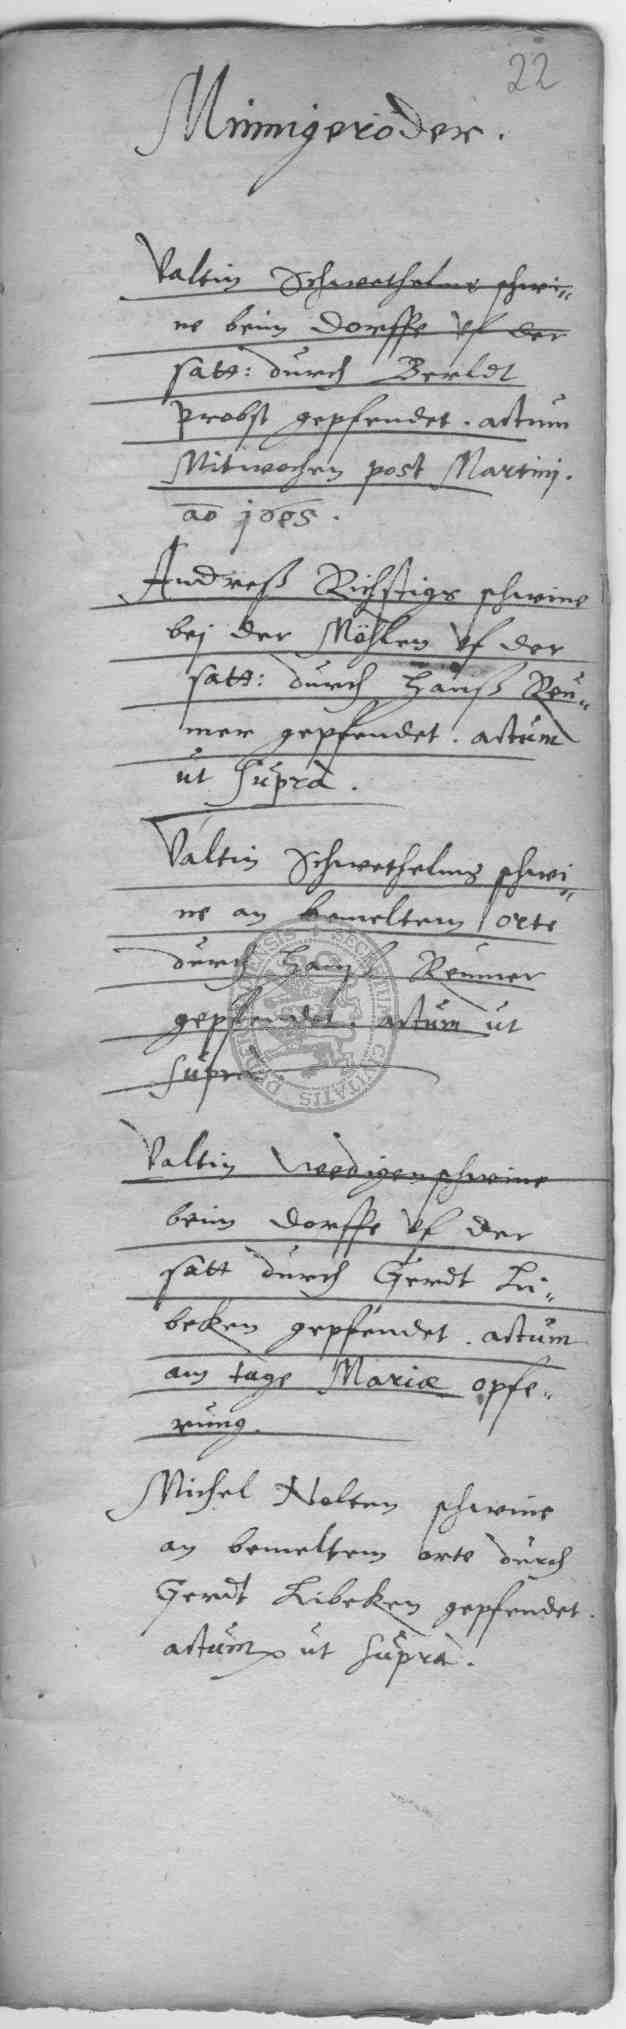 22
Minnigeröder.
Valtin Schwethelms schwi„
ne beim Dorffe vf der
satt: durch Berldt
Probst gepfendet. actum
Mitwochen post Martinj.
ao 1605.
Andreß Richstigs schwine
bej der Möhlen vf der
satt: durch Hanß Reu„
mer gepfendet. actum
ut suprà.
Valtin Schwethelms schwi„
ne an bemeltem orte
durch Hanß Reumer
gepfendet. actum ut
supra
Valtin Wedigen schwine
beim Dorffe vf der
satt durch Gerdt Li„
beken gepfendet. actum
am tage Mariæ opfe„
rung.
Michel Nolten schwine
an bemeltem orte durch
Gerdt Libeken gepfendet.
actum ut suprà.